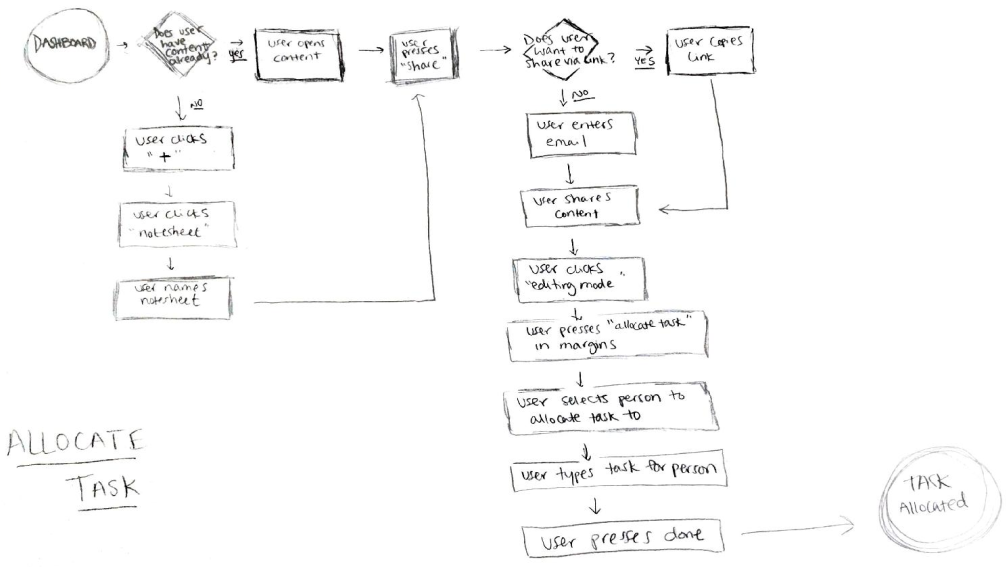 DASHBOARD
Does user
have
content
already?
yes
user opens
content
user
presses
"share"
Does user
want to
share via link?
YES
user copies
link
NO
user clicks
"+"
user clicks
"notesheet"
user names
notesheet
NO
user enters
email
user shares
content
user clicks
"editing mode"
user presses "allocate task"
in margins
user selects person to
allocate task to
user types task for person
user presses done
TASK
Allocated
ALLOCATE
TASK